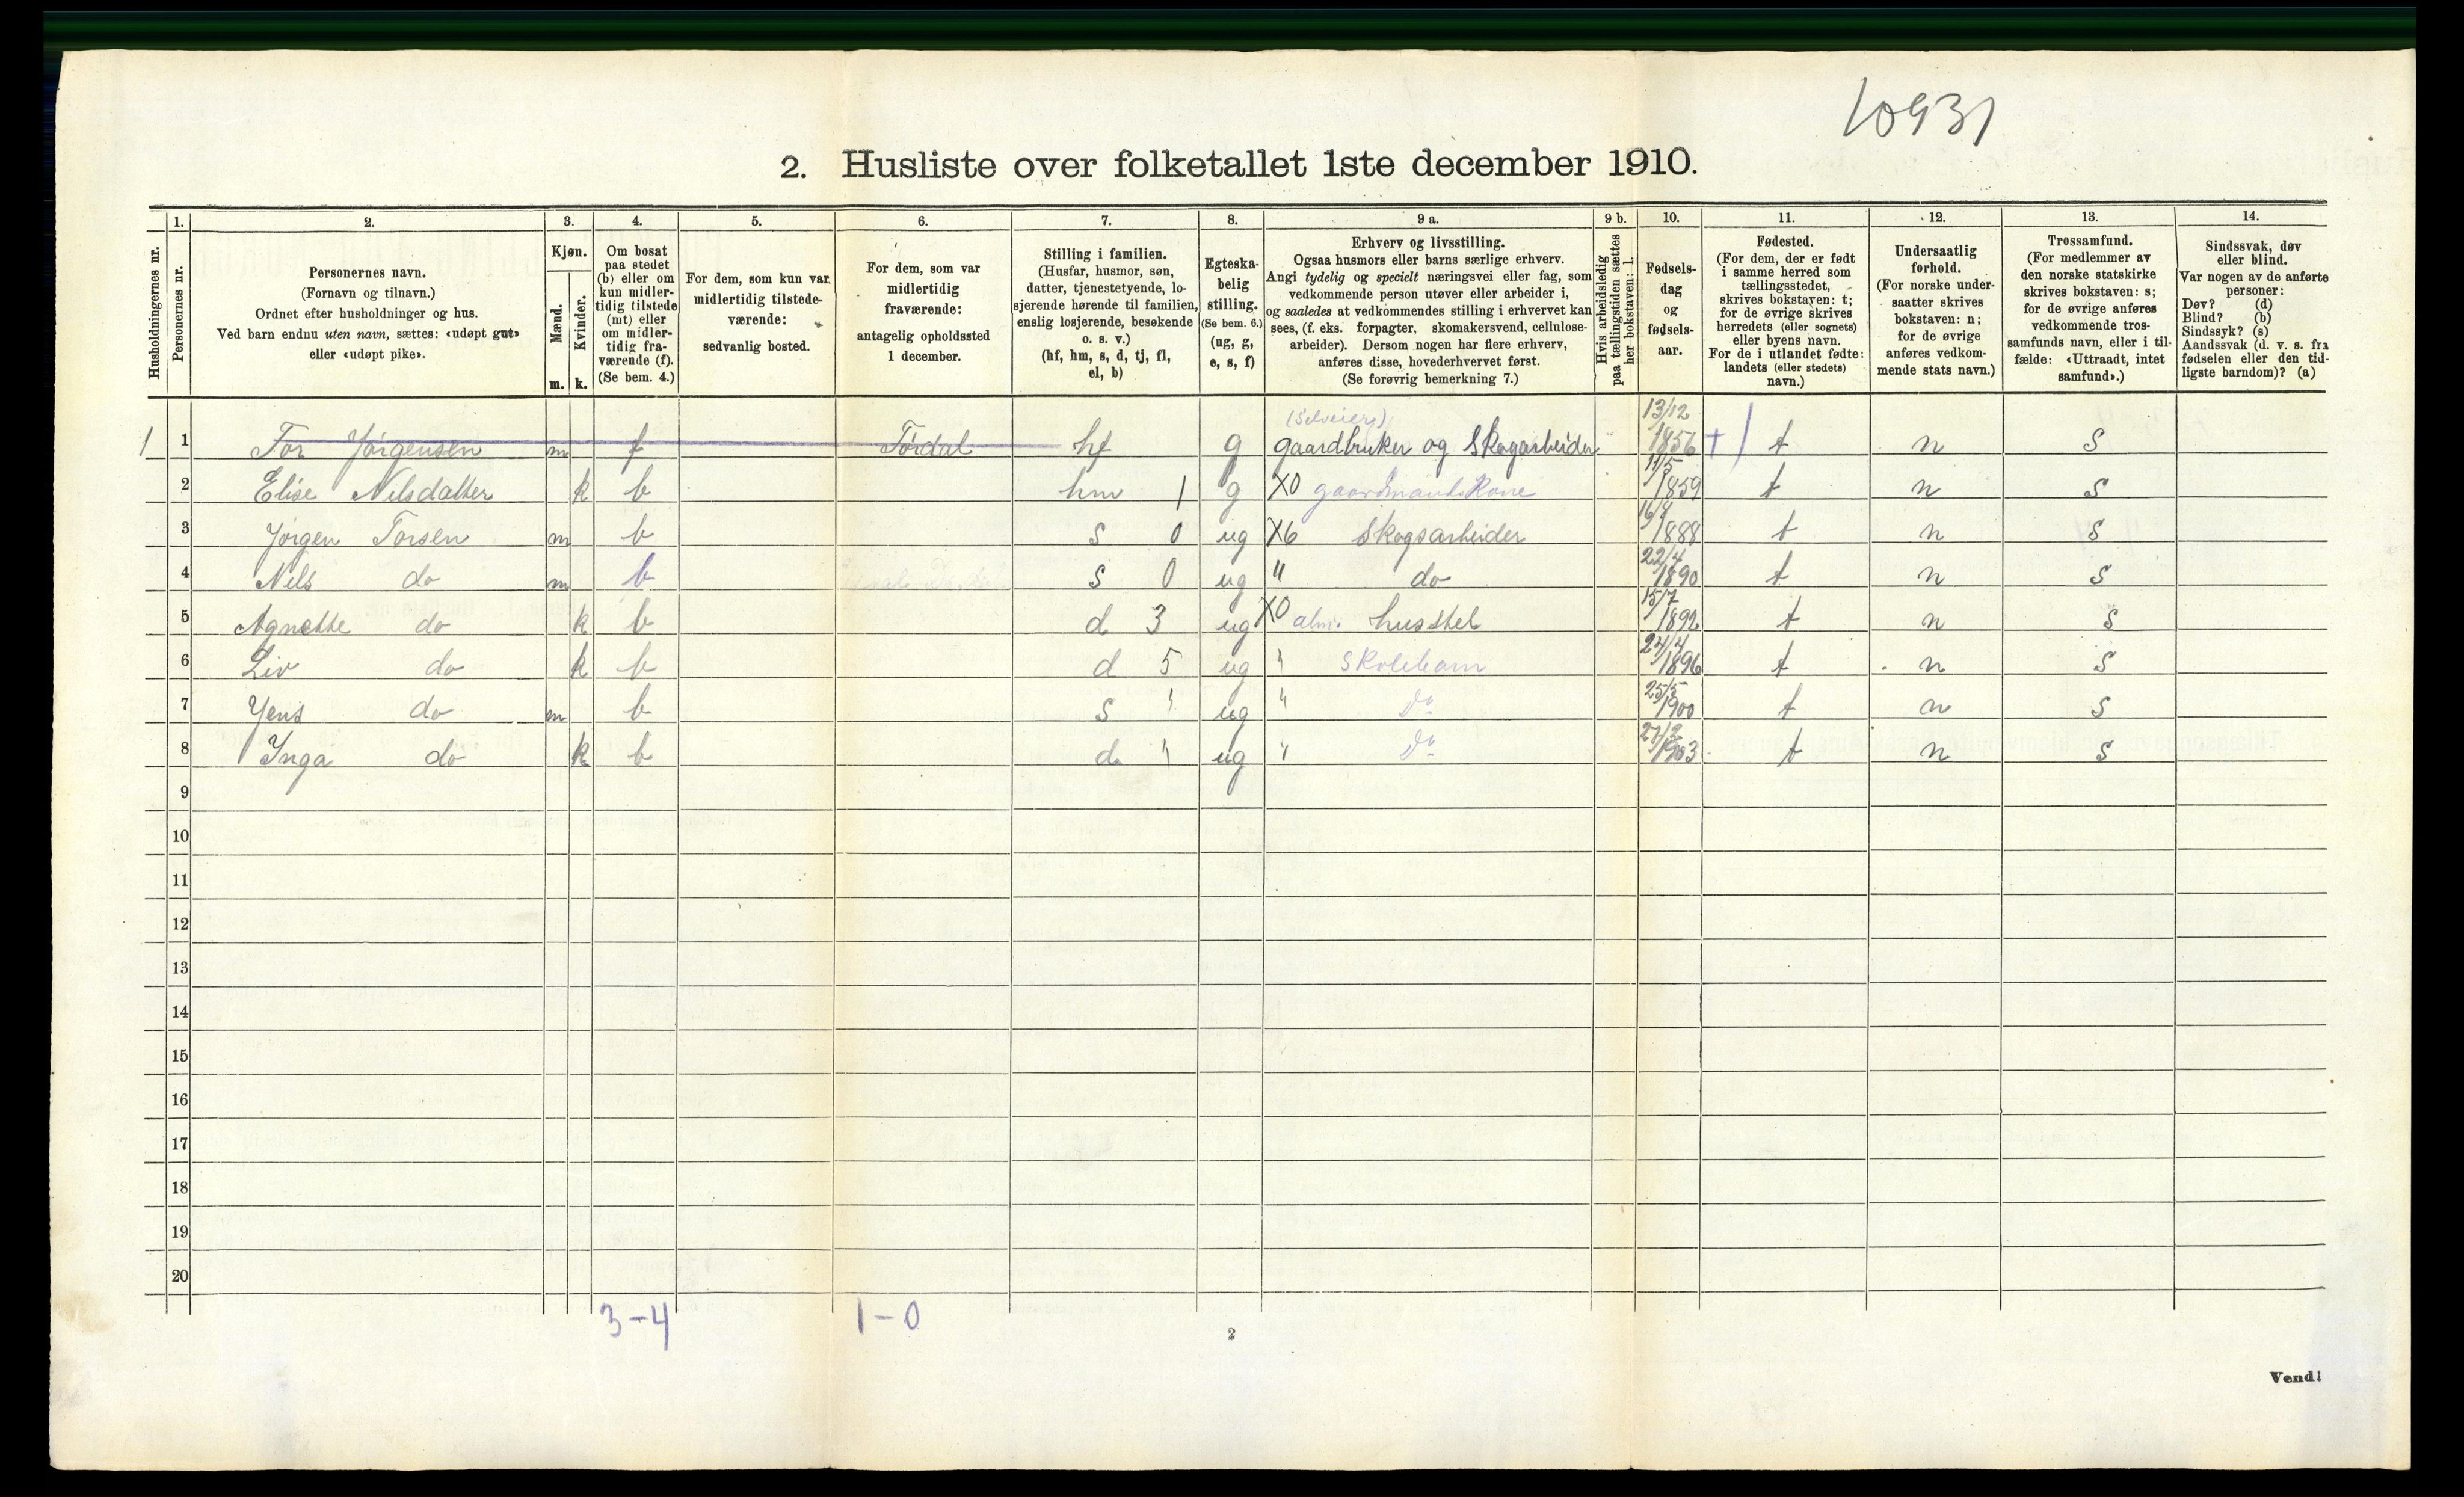 10931
2. Husliste over folketallet 1ste december 1910.
Husholdningernes nr.
1.
Personernes nr.
2.
Personernes navn.
(Fornavn og tilnavn.)
Ordnet efter husholdninger og hus.
Ved barn endnu uten navn, sættes: «udøpt gut»
eller «udøpt pike».
3.
Kjøn.
Mænd.
m.
Kvinder.
k.
4.
Om bosat
paa stedet
(b) eller om
kun midler-
tidig tilstede
(mt) eller
om midler-
tidig fra-
værende (f).
(Se bem. 4.)
5.
For dem, som kun var
midlertidig tilstede-
værende:
sedvanlig bosted.
6.
For dem, som var
midlertidig
fraværende:
antagelig opholdssted
1 december.
7.
Stilling i familien.
(Husfar, husmor, søn,
datter, tjenestetyende, lo-
sjerende hørende til familien,
enslig losjerende, besøkende
o. s. v.)
(hf, hm, s, d, tj, fl,
el, b)
8.
Egteska-
belig
stilling.
(Se bem. 6.)
(ug, g,
e, s, f)
9 a.
Erhverv og livsstilling.
Ogsaa husmors eller barns særlige erhverv.
Angi tydelig og specielt næringsvei eller fag, som
vedkommende person utøver eller arbeider i,
og saaledes at vedkommendes stilling i erhvervet kan
sees, (f. eks. forpagter, skomakersvend, cellulose-
arbeider). Dersom nogen har flere erhverv,
anføres disse, hovederhvervet først.
(Se forøvrig bemerkning 7.)
9 b.
Hvis arbeidsledig
paa tællingstiden sættes
her bokstaven: l.
10.
Fødsels-
dag
og
fødsels-
aar.
11.
Fødested.
(For dem, der er født
i samme herred som
tællingsstedet,
skrives bokstaven: t;
for de øvrige skrives
herredets (eller sognets)
eller byens navn.
For de i utlandet fødte:
landets (eller stedets)
navn.)
12.
Undersaatlig
forhold.
(For norske under-
saatter skrives
bokstaven: n;
for de øvrige
anføres vedkom-
mende stats navn.)
13.
Trossamfund.
(For medlemmer av
den norske statskirke
skrives bokstaven: s;
for de øvrige anføres
vedkommende tros-
samfunds navn, eller i til-
fælde: «Uttraadt, intet
samfund».)
14.
Sindssvak, døv
eller blind.
Var nogen av de anførte
personer:
Døv? (d)
Blind? (b)
Sindssyk? (s)
Aandssvak (d. v. s. fra
fødselen eller den tid-
ligste barndom)? (a)
(Selveier) 13/12
1 1 Tor Jørgensen m f Tørdal hf g gaardbruker og Skogarbeider 1856 + t n S
2 Elise Nilsdatter k b hm 1 g X0 gaardmands Kone 11/5 1859 t n S
3 Jørgen Torsen m b S 0 ug X6 Skogsarbeider 1888 t n S
4 Nils do m b S 0 ug " do 22/4 1890 t n S
5 Agnethe do k b d 3 ug X0 alm. husstel 15/7 1892 t n S
6 Liv do k b d 5 ug " Skolebarn 24/4 1896 t n S
7 Yens do m b S " ug " Do 25/5 1900 t n S
8 Inga do k b d " ug " Do 27/12 1903 t n S
9
10
11
12
13
14
15
16
17
18
19
20
3-4 1-0
2
Vend!